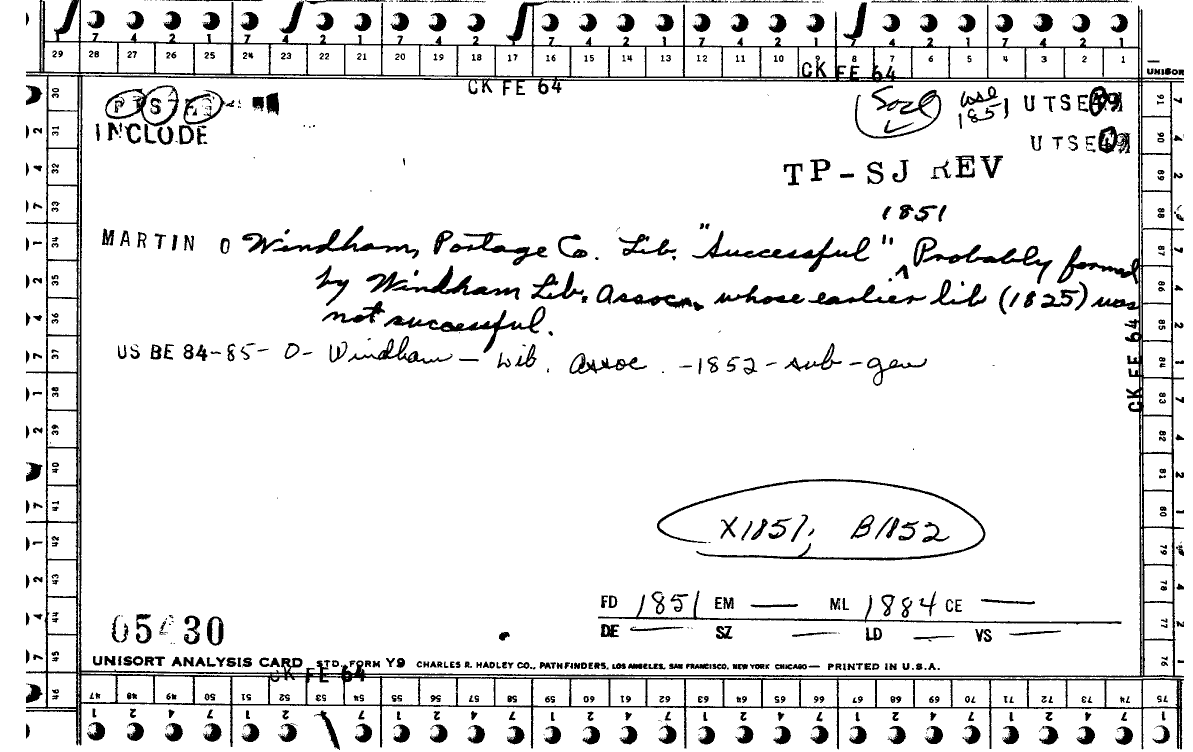 7 4 2 1 7 4 2 1 7 4 2 1 7 4 2 1 7 4 2 1 7 4 2 1 7 4 2 1
29 28 27 26 25 24 23 22 21 20 19 18 17 16 15 14 13 12 11 10 9 8 7 6 5 4 3 2 1
CK FE 64
UNISORT
CK FE 64
INCLUDE
use
1851
UTSE
UTSE
TP-SJ REV
1851
MARTIN O Windham, Portage Co. Lib. "Successful" ^ Probably formed
by Windham Lib. Assocn. whose earlier lib (1825) was
not successful.
US BE 84-85- O- Windham - Lib. Assoc. -1852-sub-gen
CK FE 64
X1851, B1852
FD 1851 EM — ML 1884 CE —
DE — SZ — LD — VS —
UNISORT ANALYSIS CARD STD. FORM Y9 CHARLES R. HADLEY CO., PATHFINDERS, LOS ANGELES, SAN FRANCISCO, NEW YORK CHICAGO — PRINTED IN U.S.A.
CK FE 64
30 31 32 33 34 35 36 37 38 39 40 41 42 43 44 45 46
91 90 89 88 87 86 85 84 83 82 81 80 79 78 77 76
47 48 49 50 51 52 53 54 55 56 57 58 59 60 61 62 63 64 65 66 67 68 69 70 71 72 73 74 75